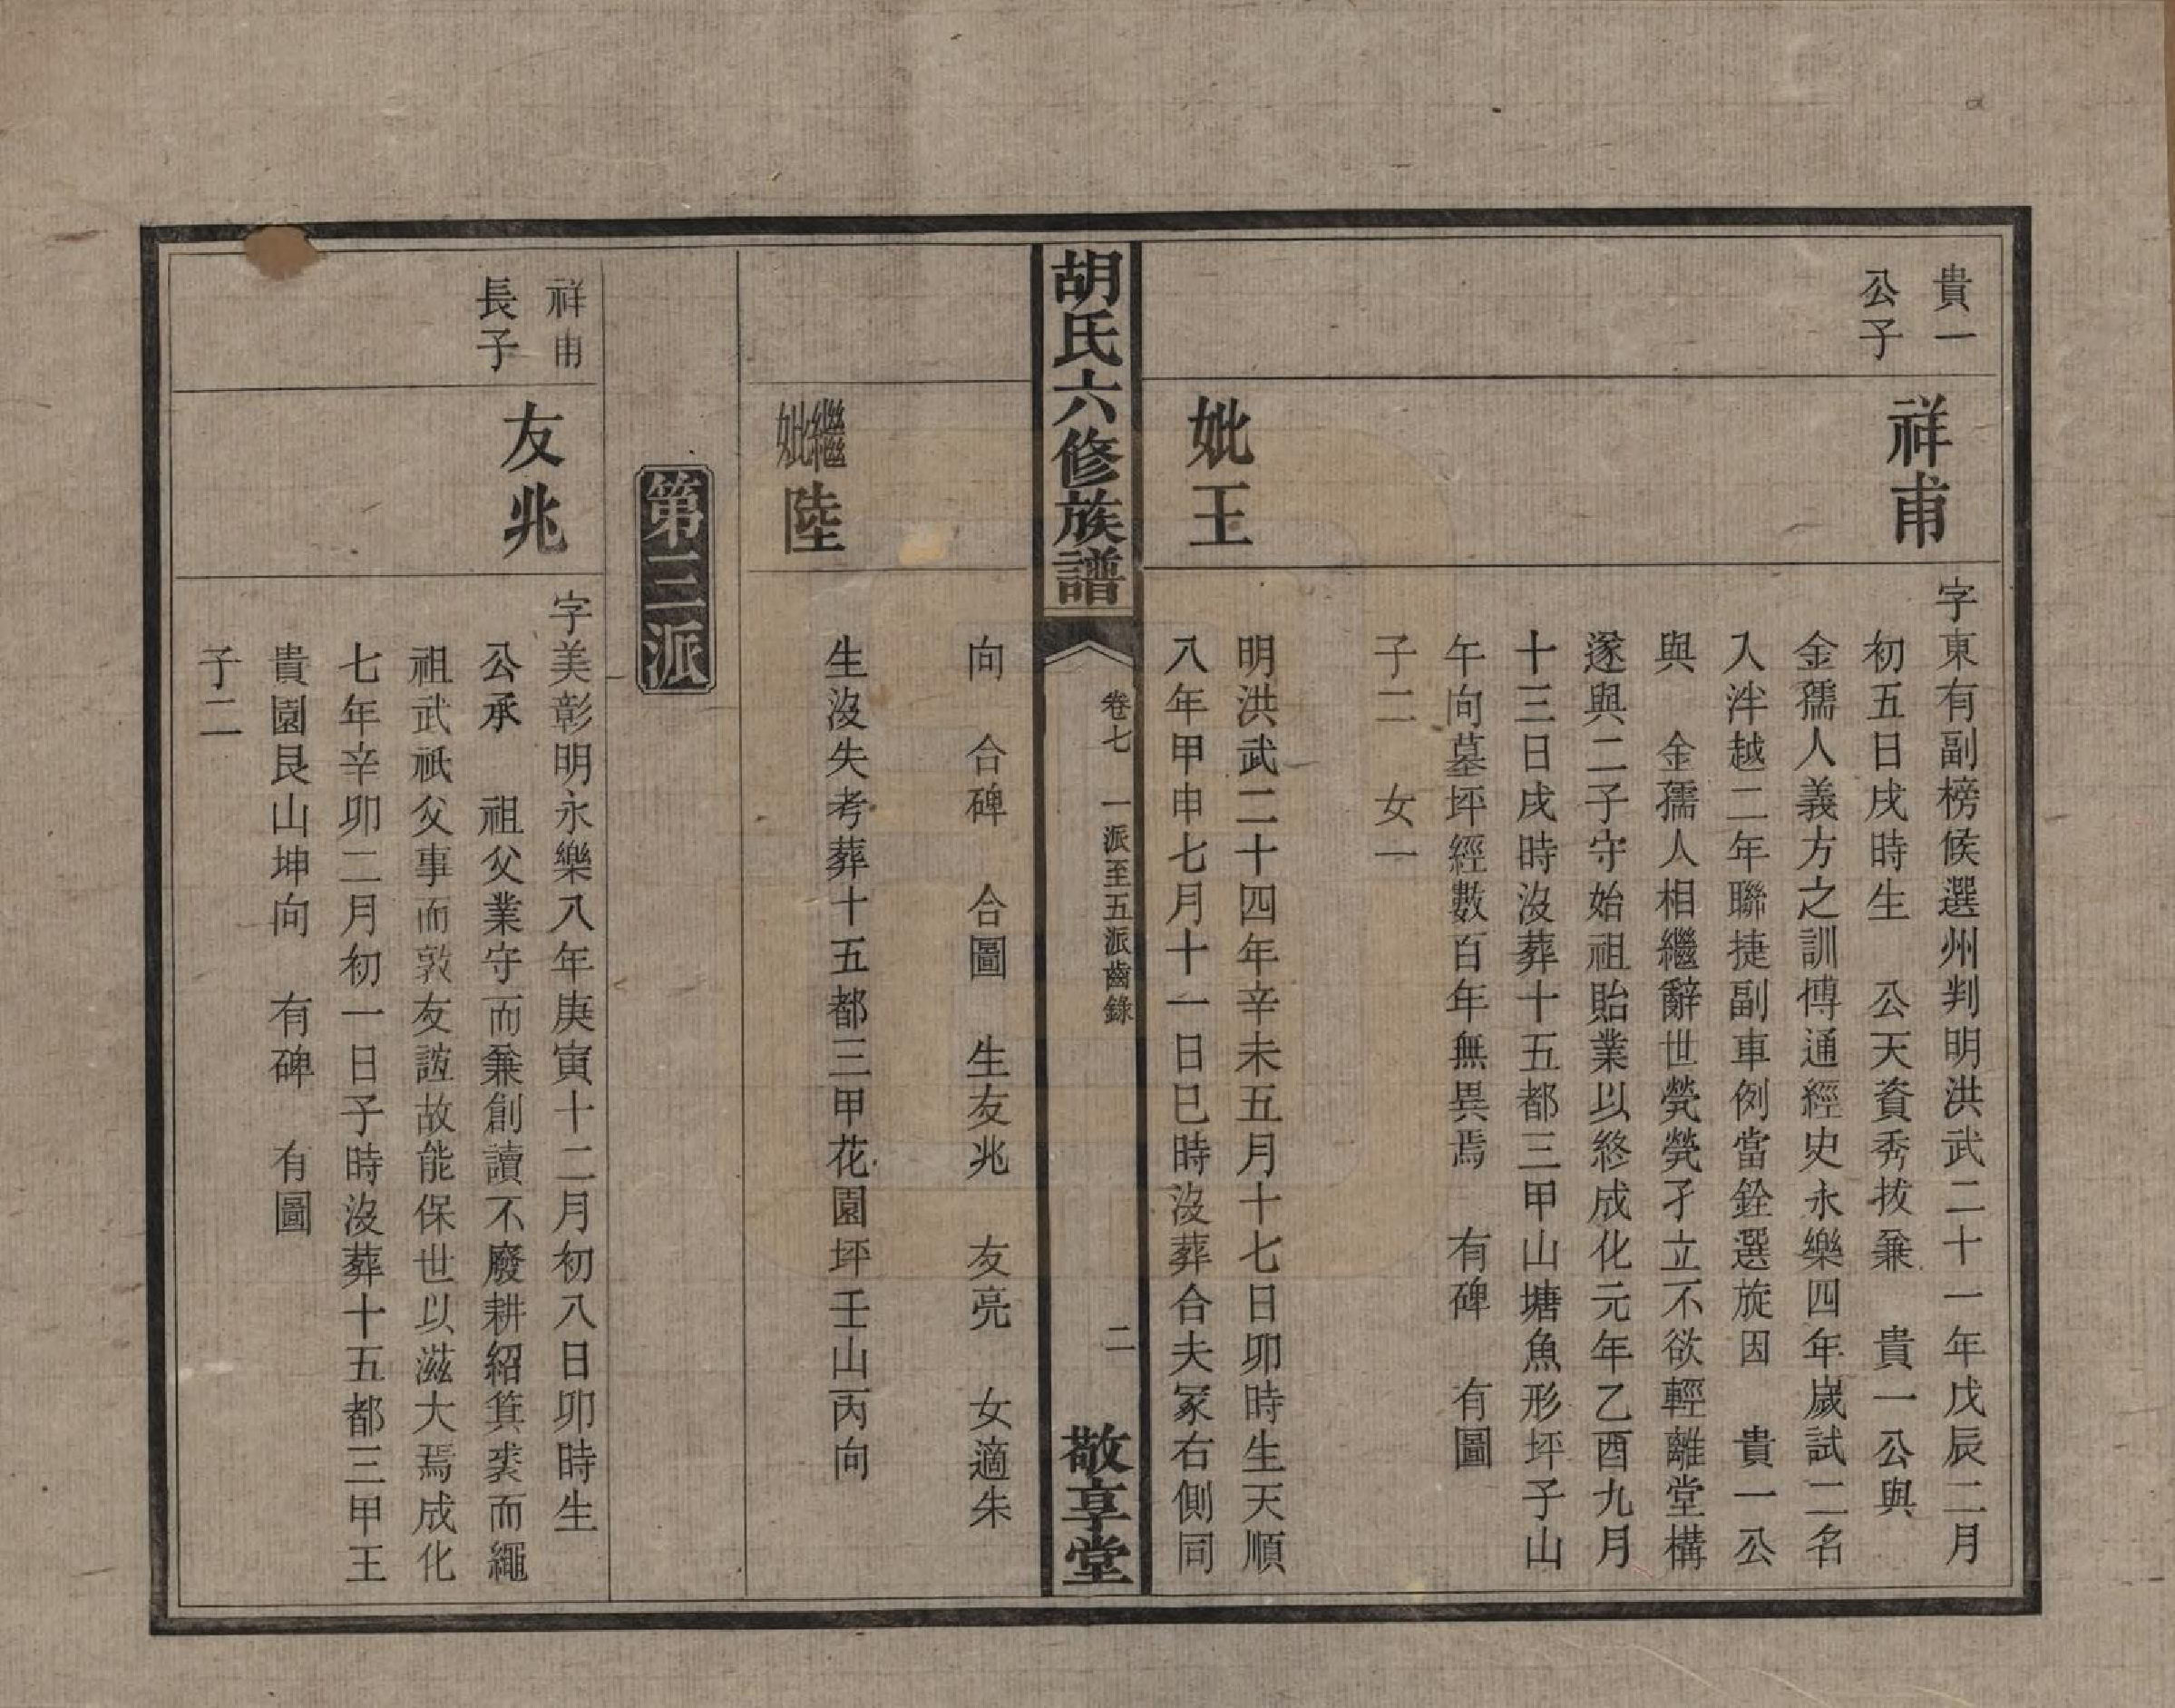 貴一
公子
祥甫
字東有副榜候選州判明洪武二十一年戊辰二月
初五日戌時生　公天資秀拔兼　貴一公與
金孺人義方之訓博通經史永樂四年歲試二名
入泮越二年聯捷副車例當銓選旋因　貴一公
與　金孺人相繼辭世煢煢孑立不欲輕離堂構
遂與二子守始祖貽業以終成化元年乙酉九月
十三日戌時沒葬十五都三甲山塘魚形坪子山
午向墓坪經數百年無異焉　有碑　有圖
子二　女一
妣王
明洪武二十四年辛未五月十七日卯時生天順
八年甲申七月十一日巳時沒葬合夫冢右側同
胡氏六修族譜
卷七　一派至五派齒錄
二
敬享堂
向　合碑　合圖　生友兆　友亮　女適朱
繼妣陸
生沒失考葬十五都三甲花園坪壬山丙向
第三派
祥甫
長子
友兆
字美彰明永樂八年庚寅十二月初八日卯時生
公承　祖父業守而兼創讀不廢耕紹箕裘而繩
祖武祇父事而敦友誼故能保世以滋大焉成化
七年辛卯二月初一日子時沒葬十五都三甲王
貴園艮山坤向　有碑　有圖
子二